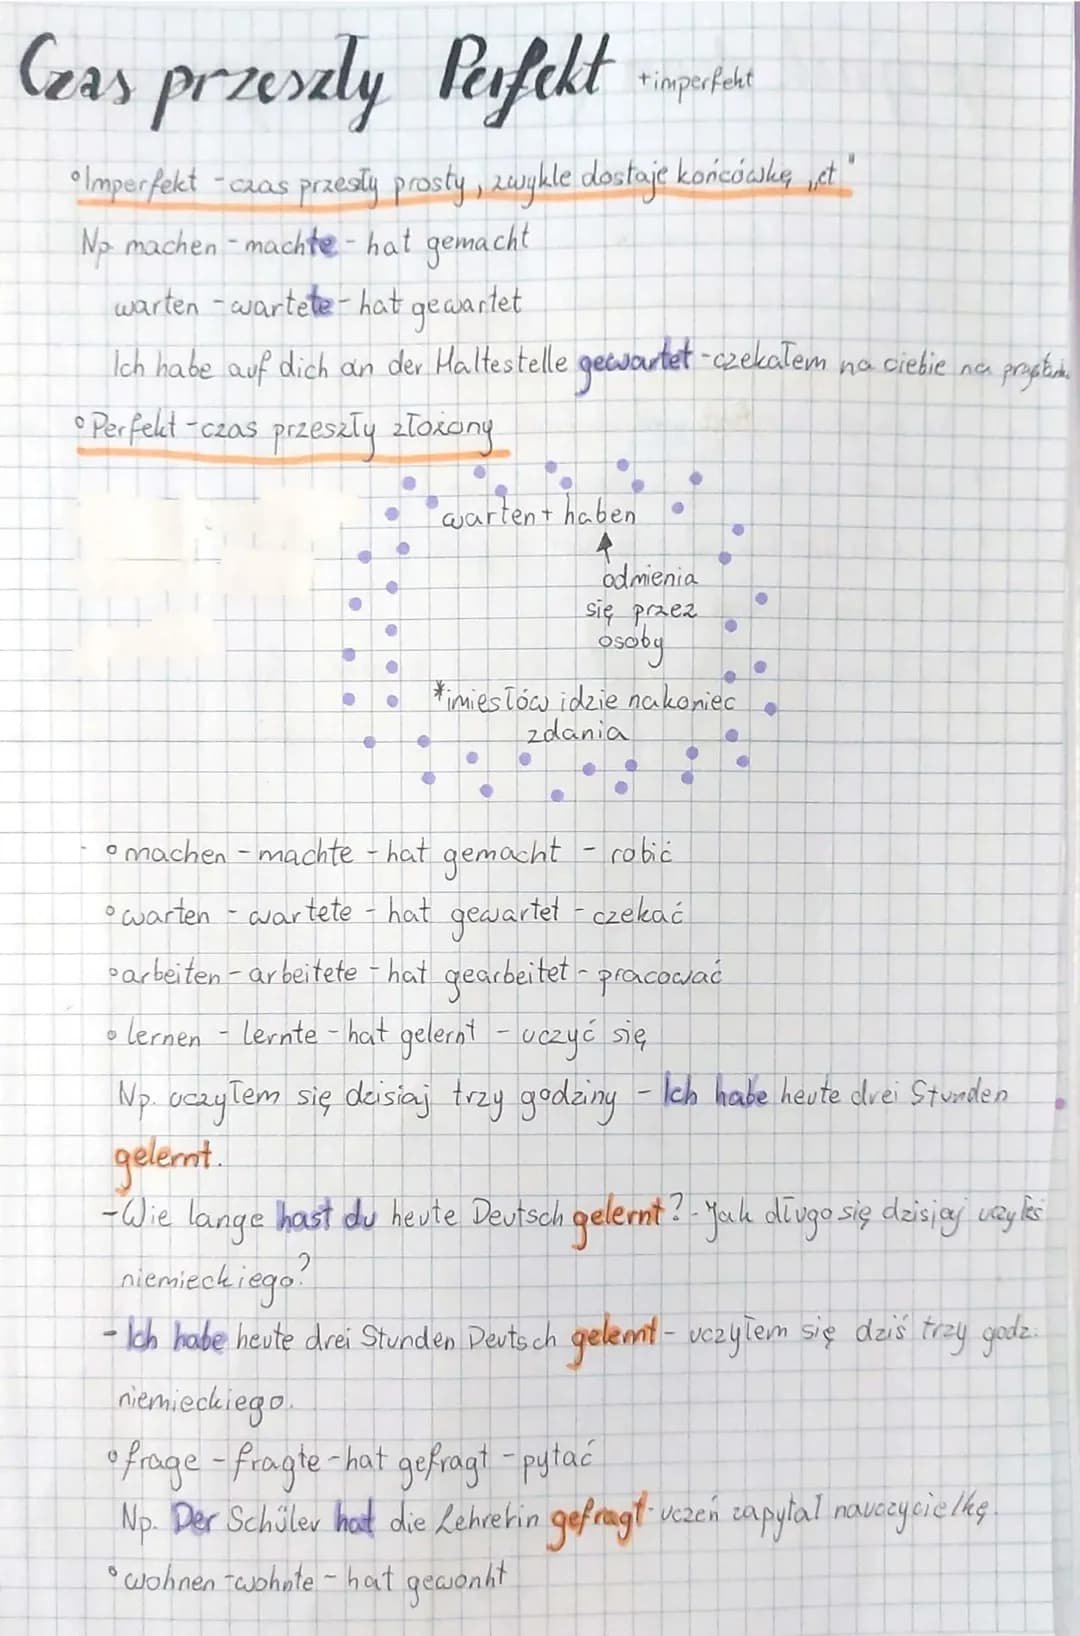 Czas przeszły Perfekt +imperfekt
°Imperfekt - czas przesły prosty, zwykle dostaje końcówkę „et"
Np machen - machte - hat gemacht
warten - wartete - hat gewartet
Ich habe auf dich an der Haltestelle gewartet - czekałem na ciebie na
° Perfekt - czas przeszły złożony
warten + haben
odmienia
się przez
osoby
*imiesłów idzie na koniec
zdania
° machen - machte - hat gemacht - robić
° warten - wartete - hat gewartet - czekać
° arbeiten - arbeitete - hat gearbeitet - pracować
° lernen - lernte - hat gelernt - uczyć się
Np. uczyłem się dzisiaj trzy godziny - Ich habe heute drei Stunden
gelernt.
- Wie lange hast du heute Deutsch gelernt? - Jak długo się dzisiaj uczyłeś
niemieckiego?
- Ich habe heute drei Stunden Deutsch gelernt - uczyłem się dziś trzy godz.
niemieckiego.
° frage - fragte - hat gefragt - pytać
Np. Der Schüler hat die Lehrerin gefragt - uczeń zapytał nauczycielkę.
° wohnen - wohnte - hat gewonht